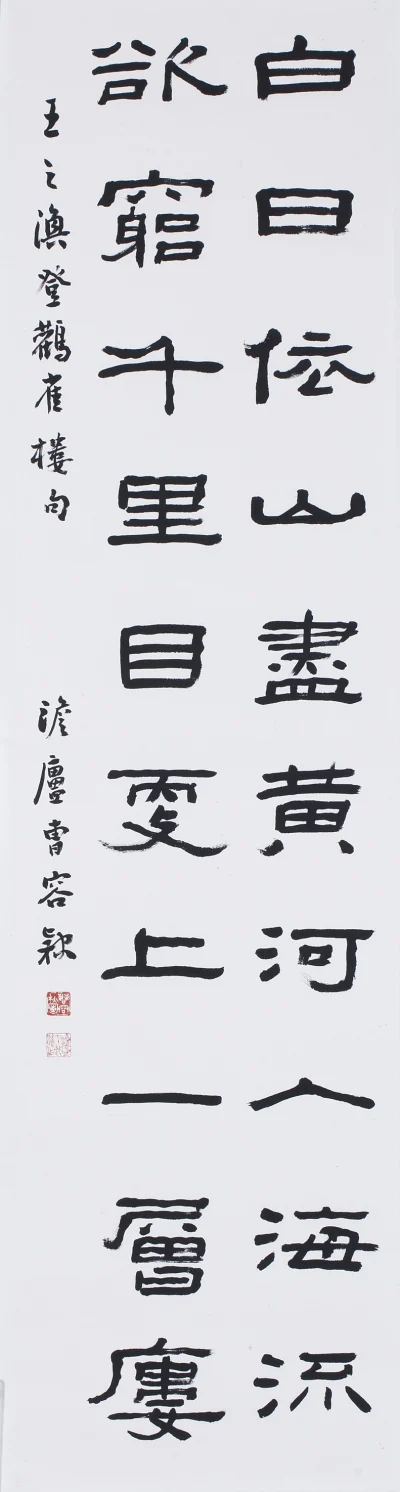 白日依山盡黃河入海流
欲竆千里目更上一層廔
王之渙登鸛雀樓句
澹廬曹容隸